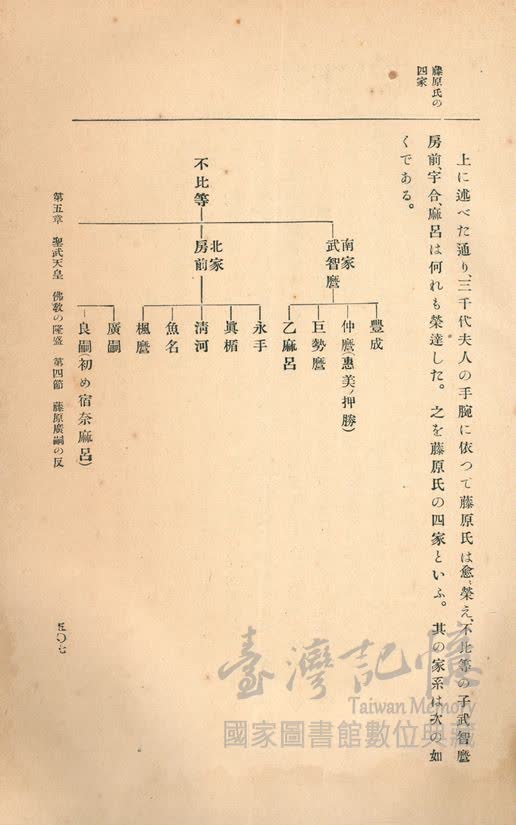 藤原氏の
四家
上に述べた通り、三千代夫人の手腕に依つて藤原氏は愈〻榮え、不比等の子武智麿
房前、宇合、麻呂は何れも榮達した。之を藤原氏の四家といふ。其の家系は次の如
くである。
不比等
南家
武智麿
豐成
仲麿(惠美ノ押勝)
巨勢麿
乙麻呂
北家
房前
永手
眞楯
淸河
魚名
楓麿
廣嗣
良嗣(初め宿奈麻呂)
第五章 聖武天皇 佛敎の隆盛 第四節 藤原廣嗣の反
五〇七
臺灣記憶
Taiwan Memory
國家圖書館數位典藏